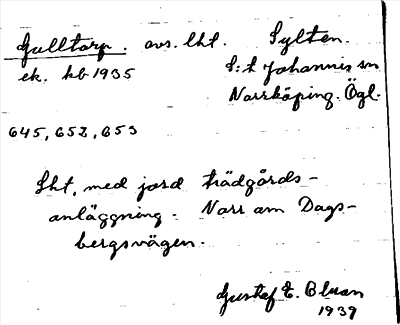 Gulltorp. avs. lht. Sylten.
ek. kb 1935 S:t Johannis sn
Norrköping. Ögl.
645, 652, 653
Lht, med jord trädgårds-
anläggning. Norr om Dags-
bergsvägen.
Gustaf E.
1939